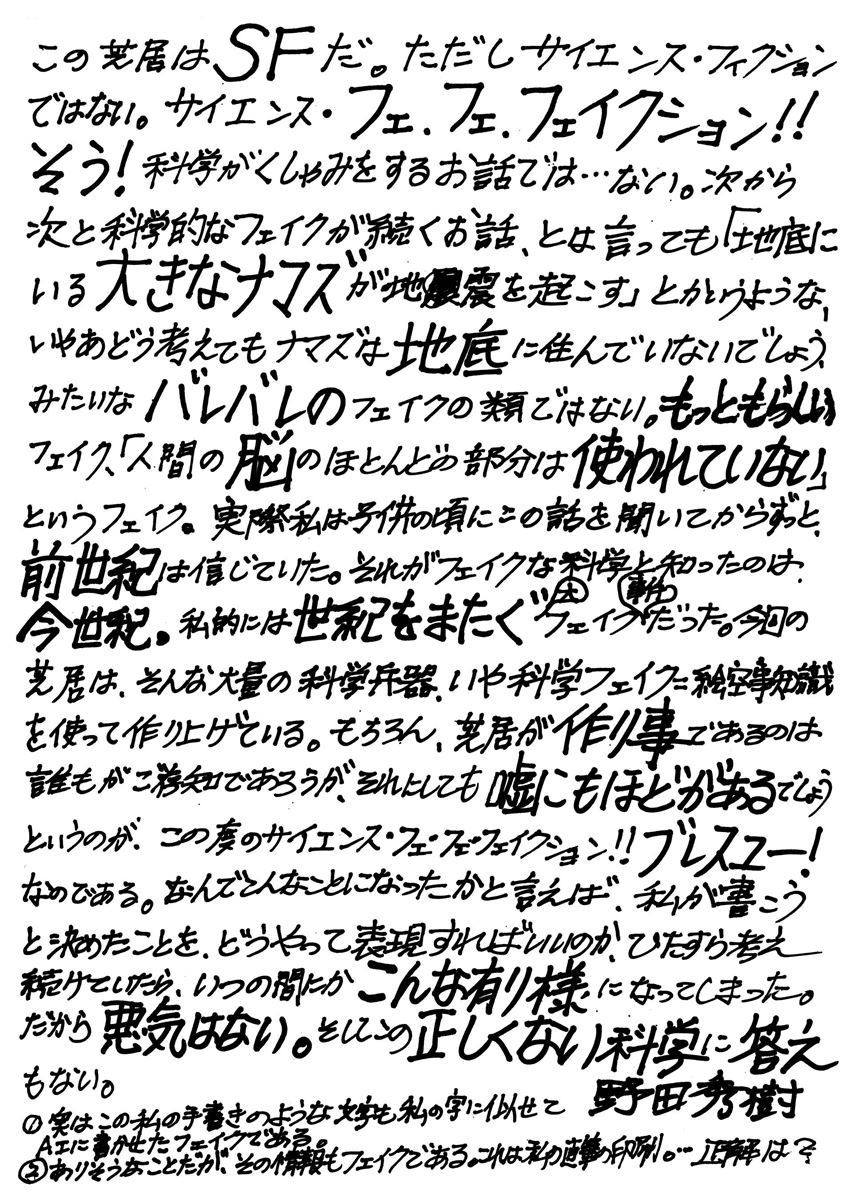 この芝居はSFだ。ただしサイエンス・フィクション
ではない。サイエンス・フェ、フェ、フェイクション!!
そう！科学がくしゃみをするお話では…ない。次から
次と科学的なフェイクが続くお話、とは言っても「地底に
いる大きなナマズが地震を起こす」とかいうような、
いやあどう考えてもナマズは地底に住んでいないでしょう、
みたいなバレバレのフェイクの類ではない。もっともらしい
フェイク、「人間の脳のほとんどの部分は使われていない」
というフェイク。実際私は子供の頃にこの話を聞いてからずっと、
前世紀は信じていた。それがフェイクな科学と知ったのは、
今世紀。私的には世紀をまたぐ大フェイク事件だった。今回の
芝居は、そんな大量の科学兵器、いや科学フェイク=絵空事知識
を使って作り上げている。もちろん、芝居が作り事であるのは
誰もがご存知であろうが、それにしても嘘にもほどがあるでしょう
というのが、この度のサイエンス・フェ・フェ・フェイクション!!ブレスユー！
なのである。なんでこんなことになったかと言えば、私が書こう
と決めたことを、どうやって表現すればいいのか、ひたすら考え
続けていたら、いつの間にかこんな有り様になってしまった。
だから悪気はない。そしてこの正しくない科学に答え
もない。
野田秀樹
①実はこの私の手書きのような文字も、私の字に似せて
AIに書かせたフェイクである。
②ありそうなことだが、その情報もフェイクである。これは私の直筆の印刷。…正解は？